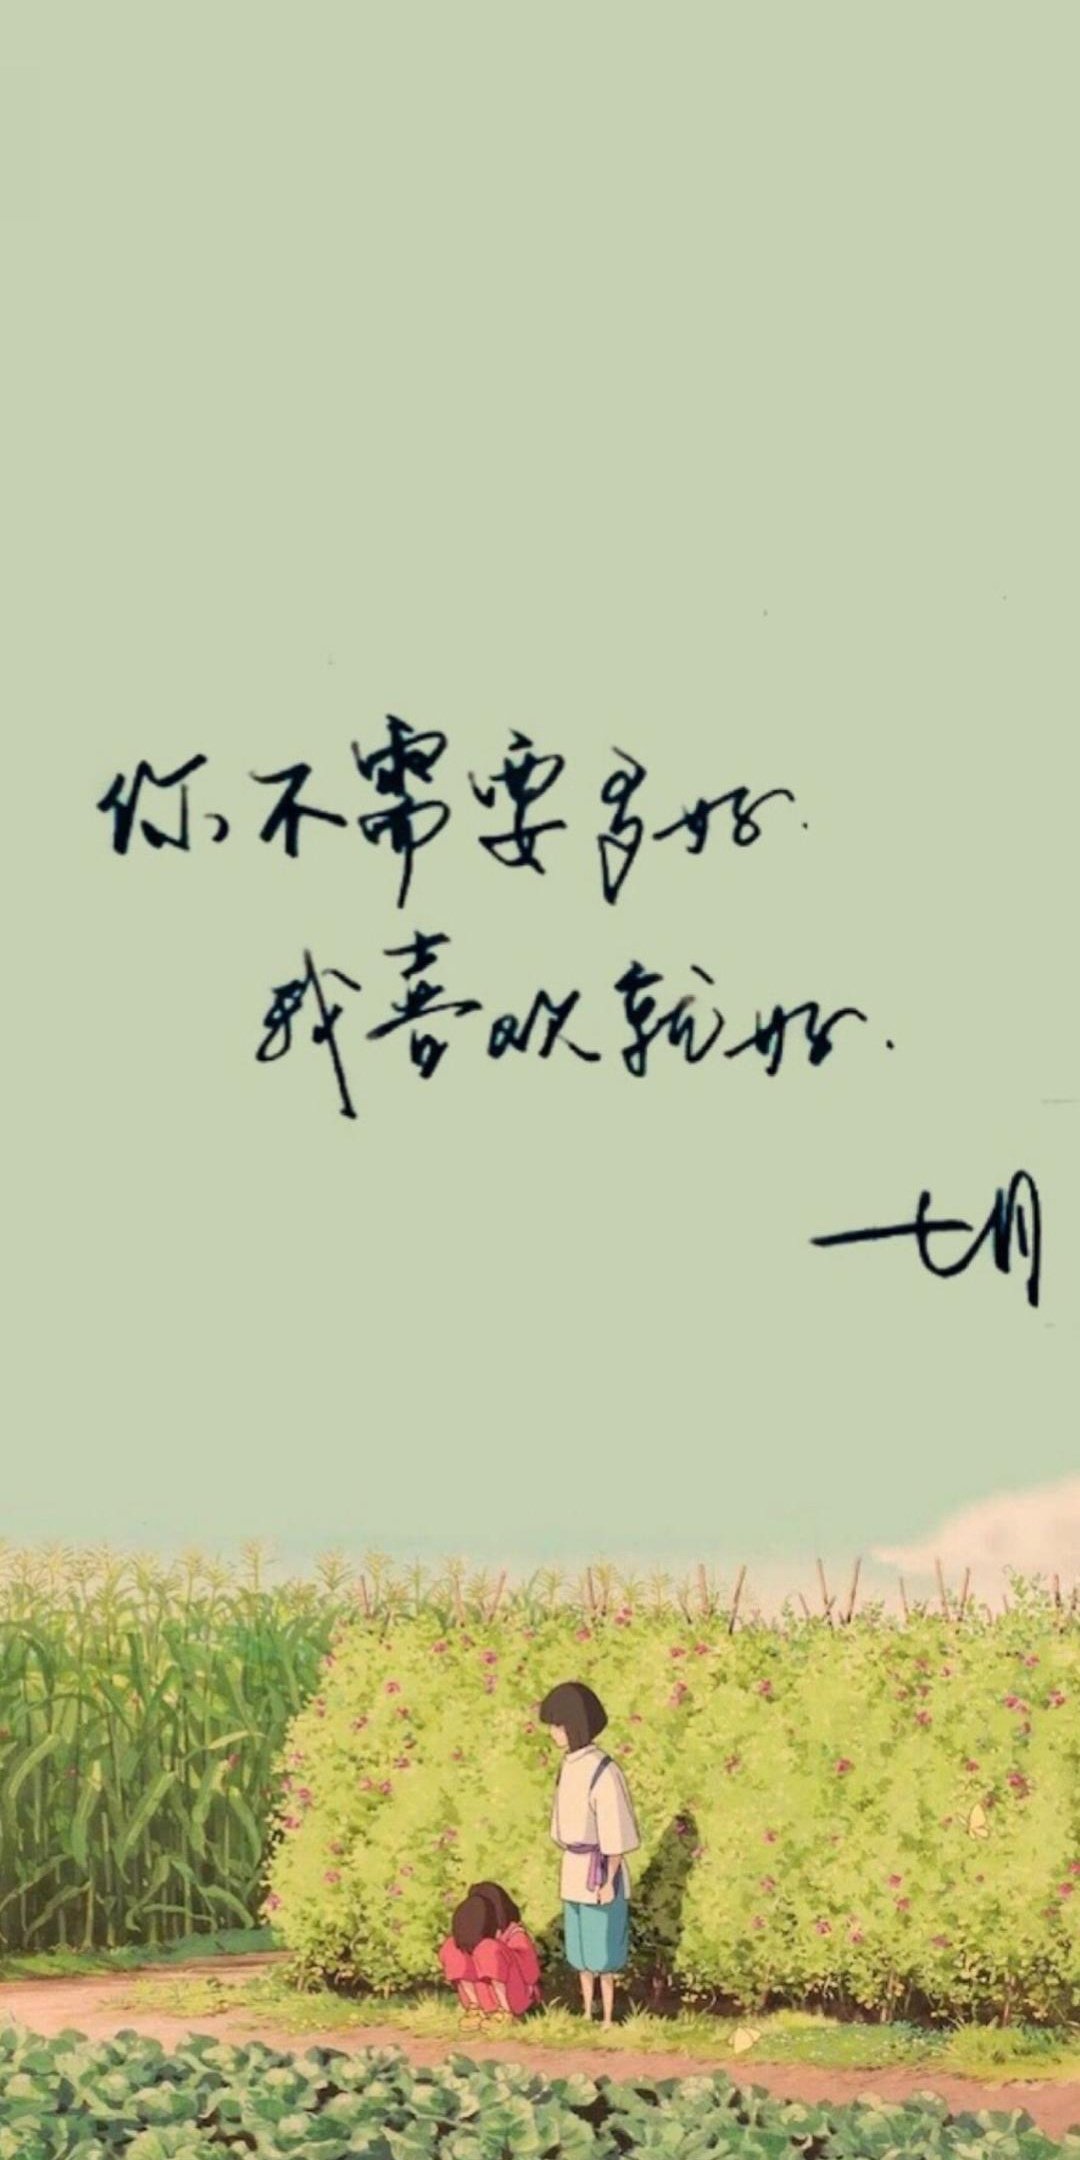 你不需要多好.
我喜欢就好.
一七月